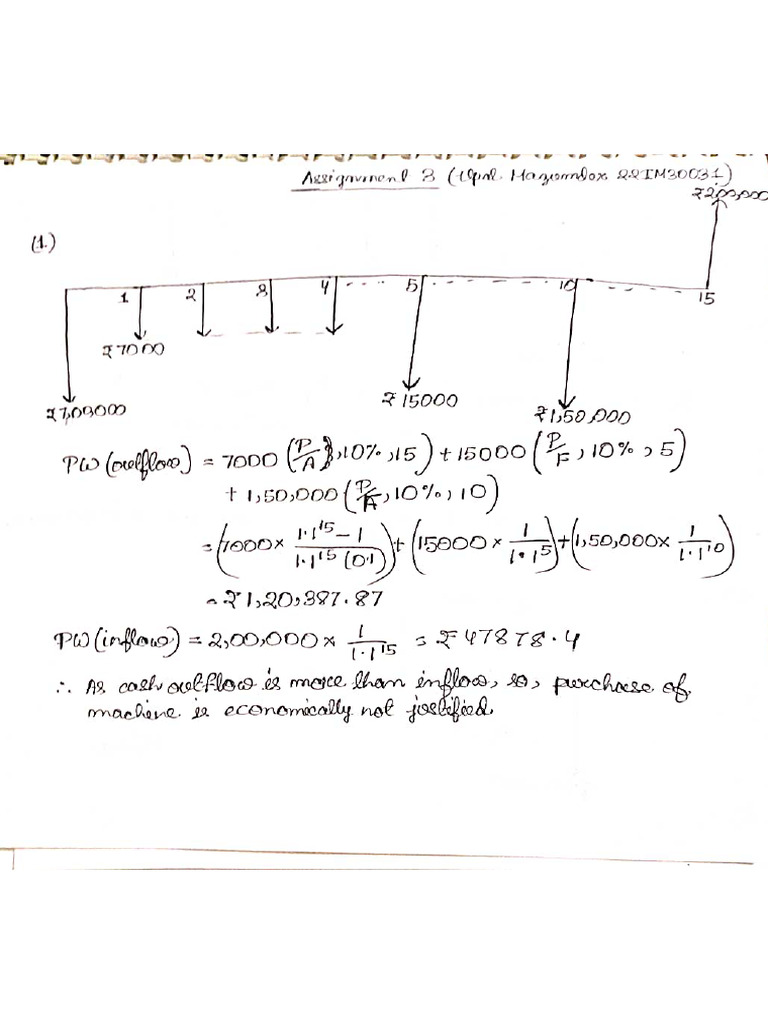 Assignment 3 (Ujal Mazumdar 22IM30031)
₹2,00,000
(1.)
1 2 3 4 5 10 15
₹7000
₹15000
₹1,50,000
PW(outflow) = 7000 (P/A, 10%, 15) + 15000 (P/F, 10%, 5)
+ 1,50,000 (P/A, 10%, 10)
= (7000 × 1.1^15 - 1 / 1.1^15 (0.1)) + (15000 × 1 / 1.1^5) + (1,50,000 × 1 / 1.1^10)
= ₹1,20,387.87
PW(inflow) = 2,00,000 × 1 / 1.1^15 = ₹47878.4
∴ As cash outflow is more than inflow, so, purchase of
machine is economically not justified